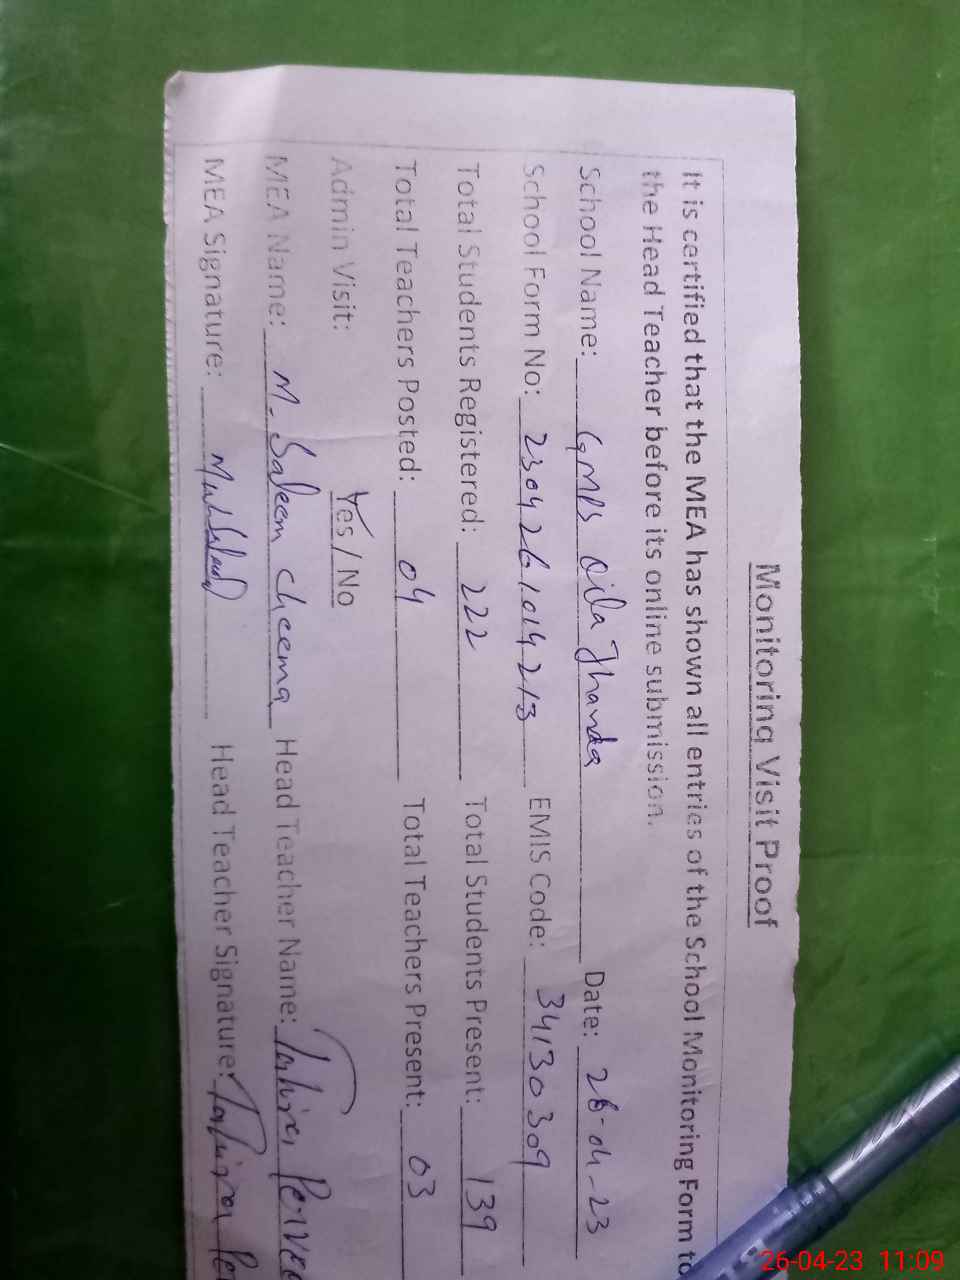 Monitoring Visit Proof
It is certified that the MEA has shown all entries of the School Monitoring Form to
the Head Teacher before its online submission.
School Name: GMPS Qila Jhanda Date: 26-04-23
School Form No: 2304261014213 EMIS Code: 34130309
Total Students Registered: 222 Total Students Present: 139
Total Teachers Posted: 04 Total Teachers Present: 03
Admin Visit: Yes / No
MEA Name: M. Saleem Cheema Head Teacher Name: Tahira Pervee
MEA Signature: Head Teacher Signature: Tahira Per
26-04-23 11:09